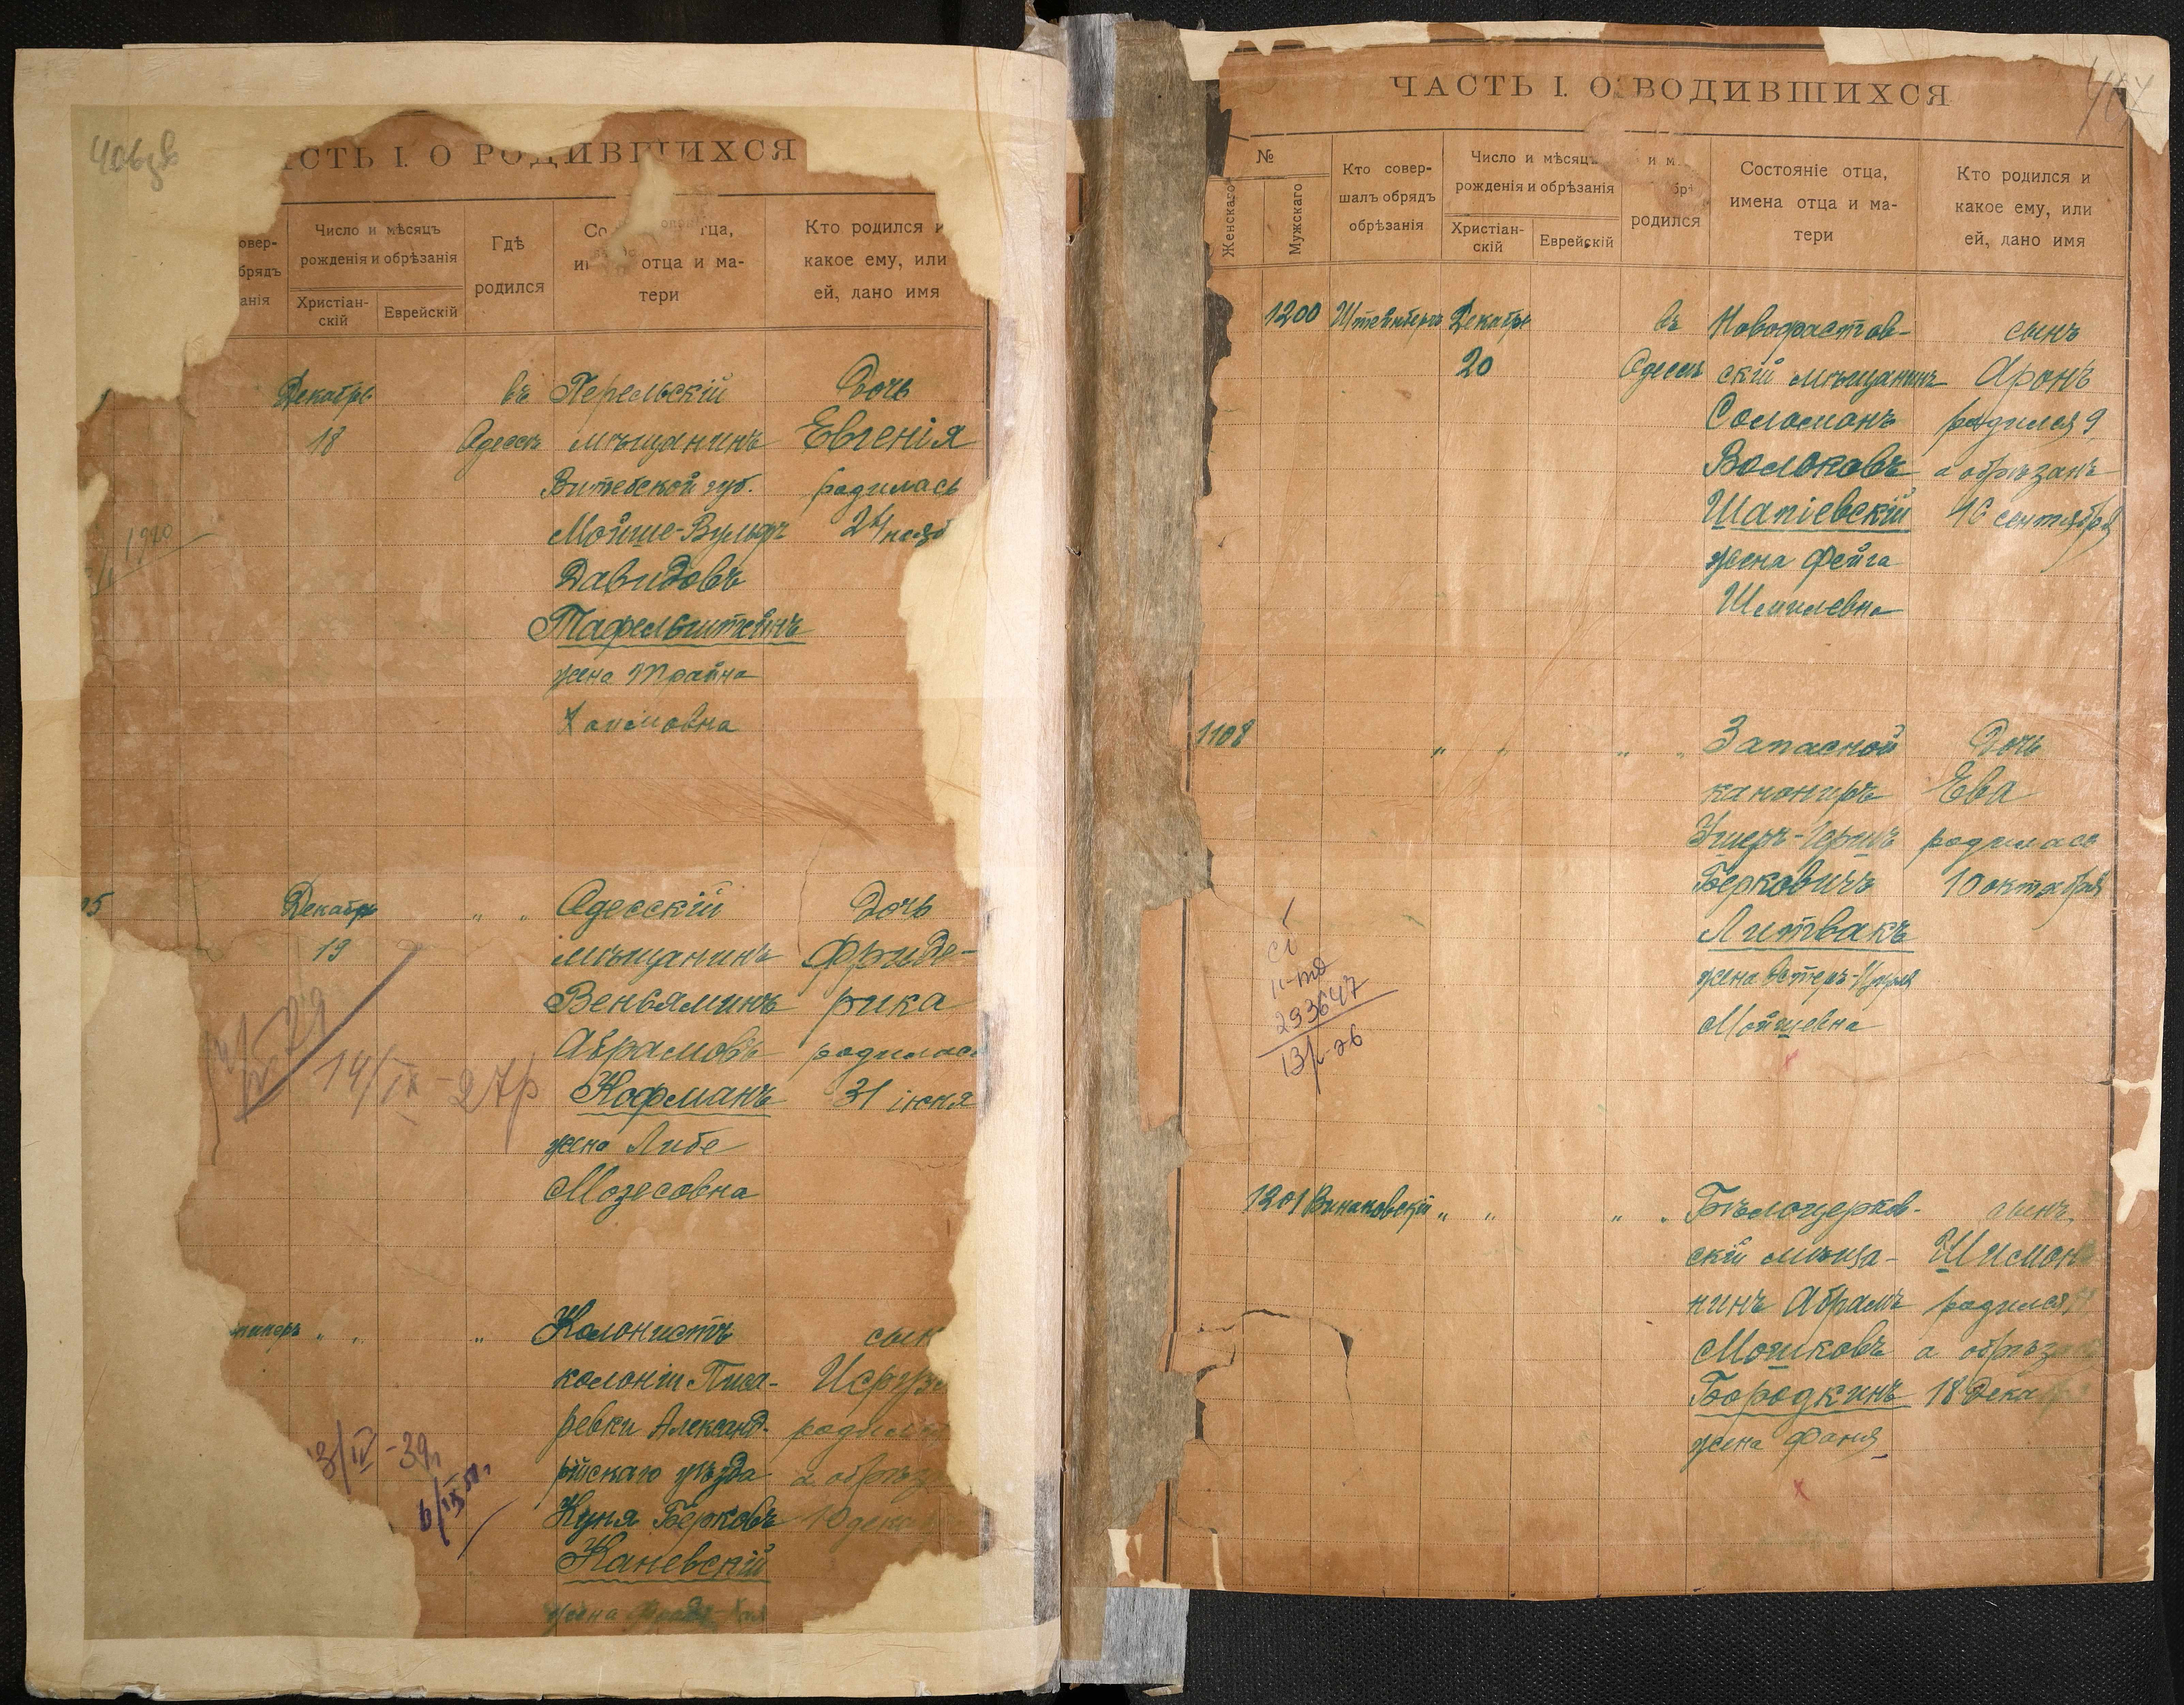 406зв
СТЬ I. О РОДИВШИХСЯ
овер-
брядъ
анія
Число и мѣсяцъ
рожденія и обрѣзанія
Христіан-
скій
Еврейскій
Гдѣ
родился
тца,
отца и ма-
тери
Кто родился и
какое ему, или
ей, дано имя
Декабрь
18
въ
Одессѣ
Перельскій
мѣщанинъ
Витебской губ.
Мойше-Вульфъ
Давидовъ
Тафельштейнъ
жена Трайна
Хаимовна
Дочь
Евгенія
родилась
24 нояб
1920
05
Декабрь
19
" "
Одесскій
мѣщанинъ
Веньяминъ
Абрамовъ
Кофманъ
жена Либе
Мозесовна
Дочь
Фриде-
рика
родилась
31 іюня
14/IX-27р
" "
"
Колонистъ
колоніи Писа-
ревки Александ-
рійскаго уѣзда
Куня Берковъ
Каневскій
жена
сын
родился
а обрѣз
10 дека
3/IV-39г
6/IX
ЧАСТЬ I. О ВОДИВШИХСЯ
407
№
Женскаго
Мужскаго
Кто совер-
шалъ обрядъ
обрѣзанія
Число и мѣсяцъ
рожденія и обрѣзанія
Христіан-
скій
Еврейскій
и м
родился
Состояніе отца,
имена отца и ма-
тери
Кто родился и
какое ему, или
ей, дано имя
1200
Штейнбергъ
Декабрь
20
въ
Одессѣ
Новорастов-
скій мѣщанинъ
Соломонъ
Волоковъ
Шапіевскій
жена Фейга
Шмилевна
сынъ
Аронъ
родился 9,
а обрѣзанъ
16 сентября
1108
" "
" "
Запасной
канониръ
Ушеръ-Гершъ
Берковичъ
Литвакъ
жена Эстеръ-Цирля
Мойшевна
Дочь
Ева
родилась
10 октября
293647
13/-26
1201
Винаковскій
" "
" "
Бѣлоцерков-
скій мѣща-
нинъ Абрамъ
Мошковъ
Бородкинъ
жена Фаня
сынъ
Шимон
родился
а обрѣзанъ
18 Декабря